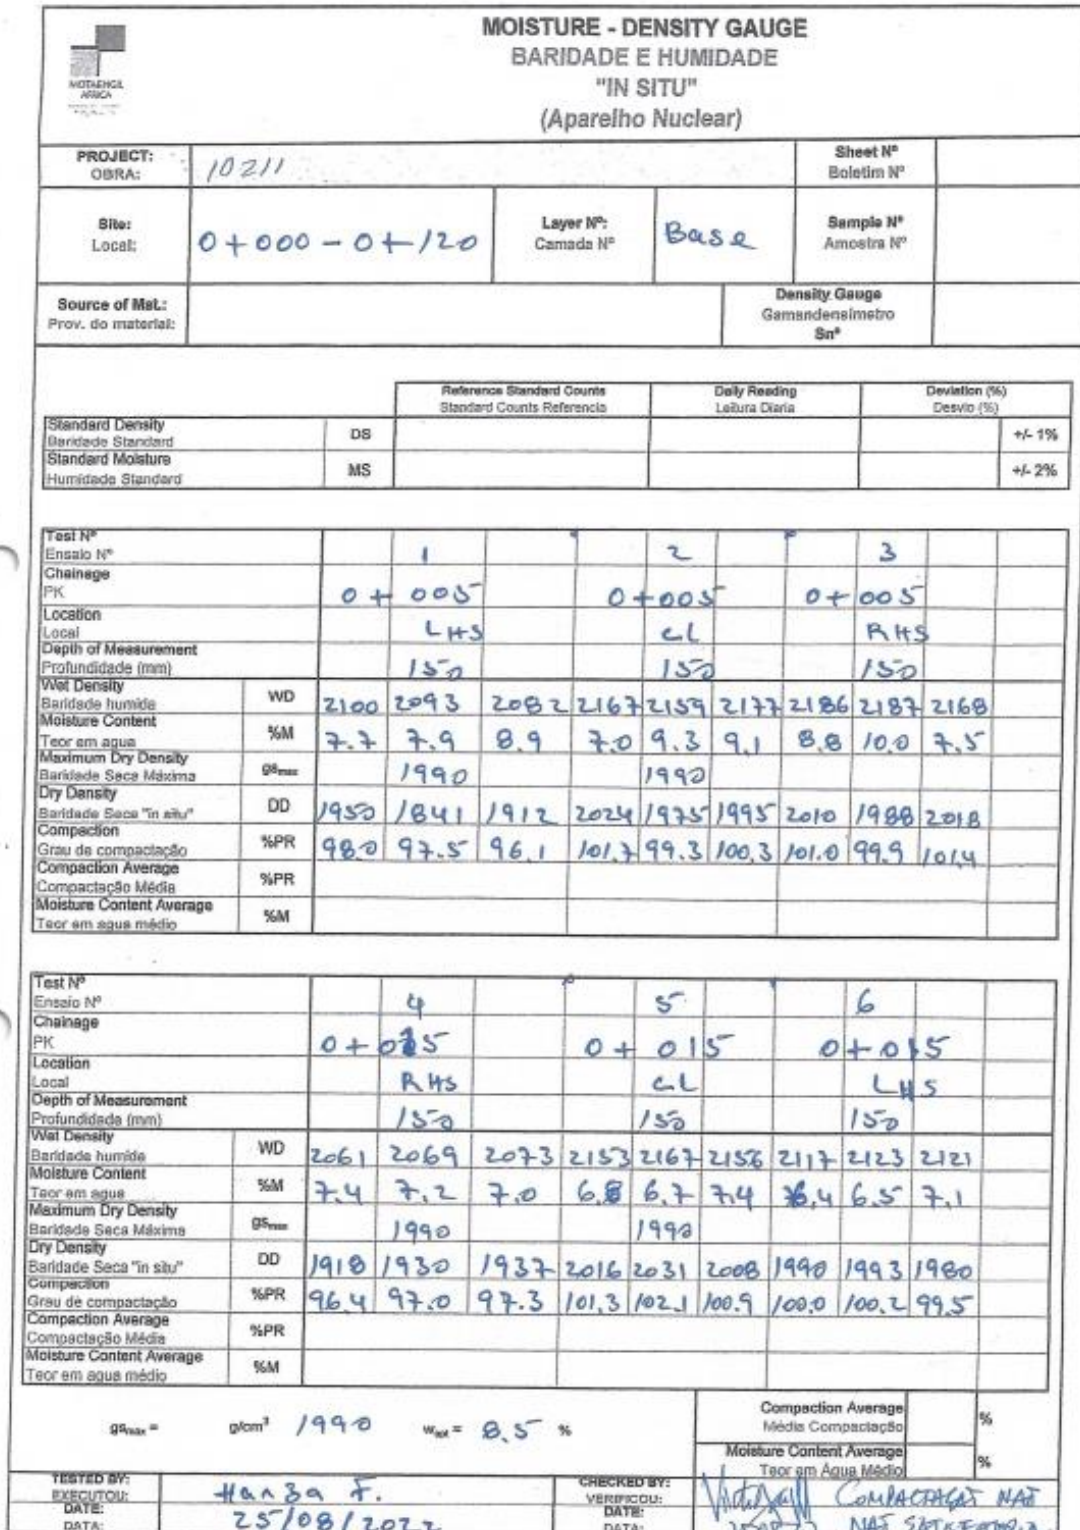 MOISTURE - DENSITY GAUGE
BARIDADE E HUMIDADE
"IN SITU"
(Aparelho Nuclear)
MOTAENGIL
AFRICA
PROJECT: 10211 Sheet Nº
OBRA: Boletim Nº
Site: 0+000 - 0+120 Layer Nº: Base Sample Nº
Local: Camada Nº Amostra Nº
Source of Mat.: Density Gauge
Prov. do material: Gamandensimetro
Snº
Reference Standard Counts Daily Reading Deviation (%)
Standard Counts Referencia Leitura Diaria Desvio (%)
Standard Density DS +/- 1%
Baridade Standard
Standard Moisture MS +/- 2%
Humidade Standard
Test Nº
Ensaio Nº 1 2 3
Chainage
PK 0+005 0+005 0+005
Location
Local LHS CL RHS
Depth of Measurement
Profundidade (mm) 150 150 150
Wet Density
Baridade humida WD 2100 2093 2082 2167 2159 2177 2186 2187 2168
Moisture Content
Teor em agua %M 7.7 7.9 8.9 7.0 9.3 9.1 8.8 10.0 7.5
Maximum Dry Density
Baridade Seca Máxima gsmax 1990 1990
Dry Density
Baridade Seca "in situ" DD 1950 1841 1912 2024 1975 1995 2010 1988 2018
Compaction
Grau de compactação %PR 98.0 97.5 96.1 101.7 99.3 100.3 101.0 99.9 101.4
Compaction Average
Compactação Média %PR
Moisture Content Average
Teor em agua médio %M
Test Nº
Ensaio Nº 4 5 6
Chainage
PK 0+015 0+015 0+015
Location
Local RHS CL LHS
Depth of Measurement
Profundidade (mm) 150 150 150
Wet Density
Baridade humida WD 2061 2069 2073 2153 2167 2156 2117 2123 2121
Moisture Content
Teor em agua %M 7.4 7.2 7.0 6.8 6.7 7.4 6.4 6.5 7.1
Maximum Dry Density
Baridade Seca Máxima gsmax 1990 1990
Dry Density
Baridade Seca "in situ" DD 1918 1930 1937 2016 2031 2008 1990 1993 1980
Compaction
Grau de compactação %PR 96.4 97.0 97.3 101.3 102.1 100.9 100.0 100.2 99.5
Compaction Average
Compactação Média %PR
Moisture Content Average
Teor em agua médio %M
gsmax = g/cm³ 1990 wopt = 8.5 %
Compaction Average %
Média Compactação
Moisture Content Average %
Teor em Água Médio
TESTED BY: Hanza F. CHECKED BY:
EXECUTOU: VERIFICOU: COMPACTAÇÃO NAS
DATE: 25/08/2022 DATE:
DATA: DATA: